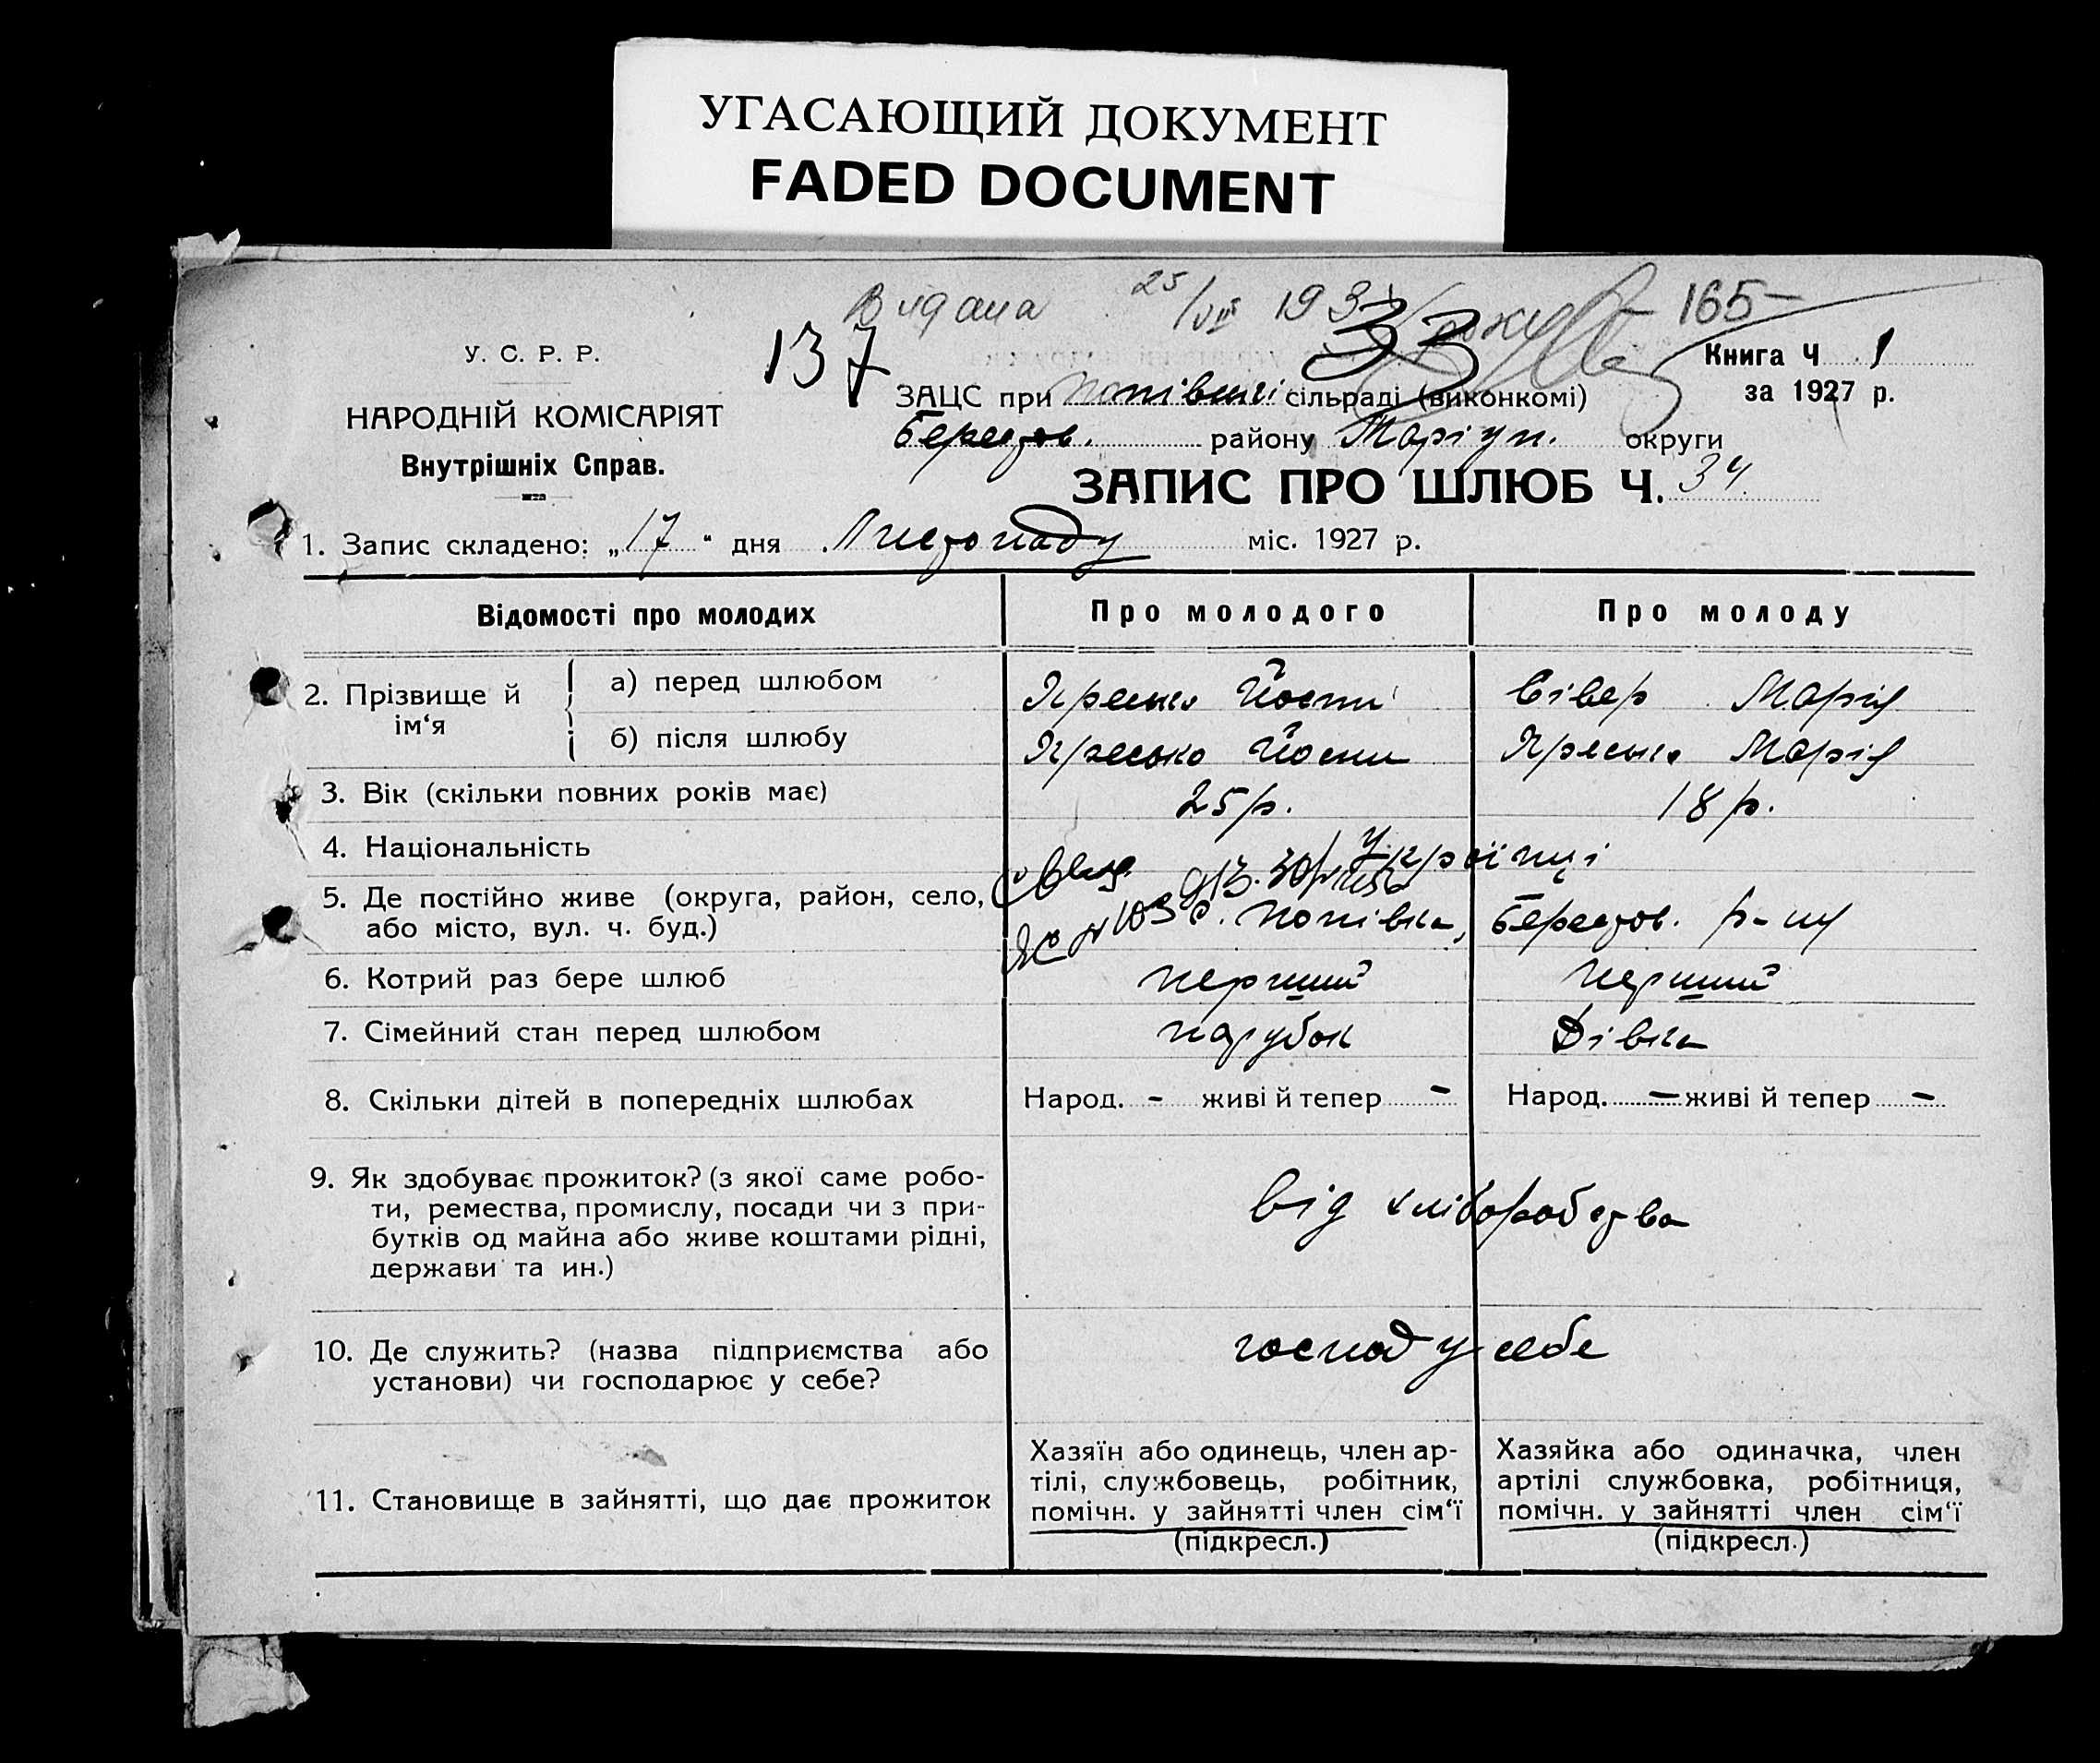 УГАСАЮЩИЙ ДОКУМЕНТ
FADED DOCUMENT
Видана 25/VIII 193 року 165-
137 33
У. С. Р. Р.
НАРОДНІЙ КОМІСАРІЯТ
Внутрішніх Справ.
Книга Ч 1
за 1927 р.
ЗАЦС при Попівській сільраді (виконкомі)
Берестов. району Маріуп. округи
ЗАПИС ПРО ШЛЮБ Ч. 34
1. Запис складено: „17" дня Листопаду міс. 1927 р.
Відомості про молодих Про молодого Про молоду
2. Прізвище й ім'я
а) перед шлюбом Яресько Йосип Сівер Марія
б) після шлюбу Яресько Йосип Яресько Марія
3. Вік (скільки повних років має) 25 р. 18 р.
4. Національність Українці
5. Де постійно живе (округа, район, село, або місто, вул. ч. буд.) с. Попівка, Берестов. р-ну
6. Котрий раз бере шлюб перший перший
7. Сімейний стан перед шлюбом парубок Дівка
8. Скільки дітей в попередніх шлюбах Народ. - живі й тепер - Народ. - живі й тепер -
9. Як здобуває прожиток? (з якої саме робо-
ти, ремества, промислу, посади чи з при-
бутків од майна або живе коштами рідні,
держави та ин.)
від хліборобства
10. Де служить? (назва підприємства або
установи) чи господарює у себе?
господ у себе
11. Становище в зайнятті, що дає прожиток
Хазяїн або одинець, член ар-
тілі, службовець, робітник,
помічн. у зайнятті член сім'ї
(підкресл.)
Хазяйка або одиначка, член
артілі службовка, робітниця,
помічн. у зайнятті член сім'ї
(підкресл.)